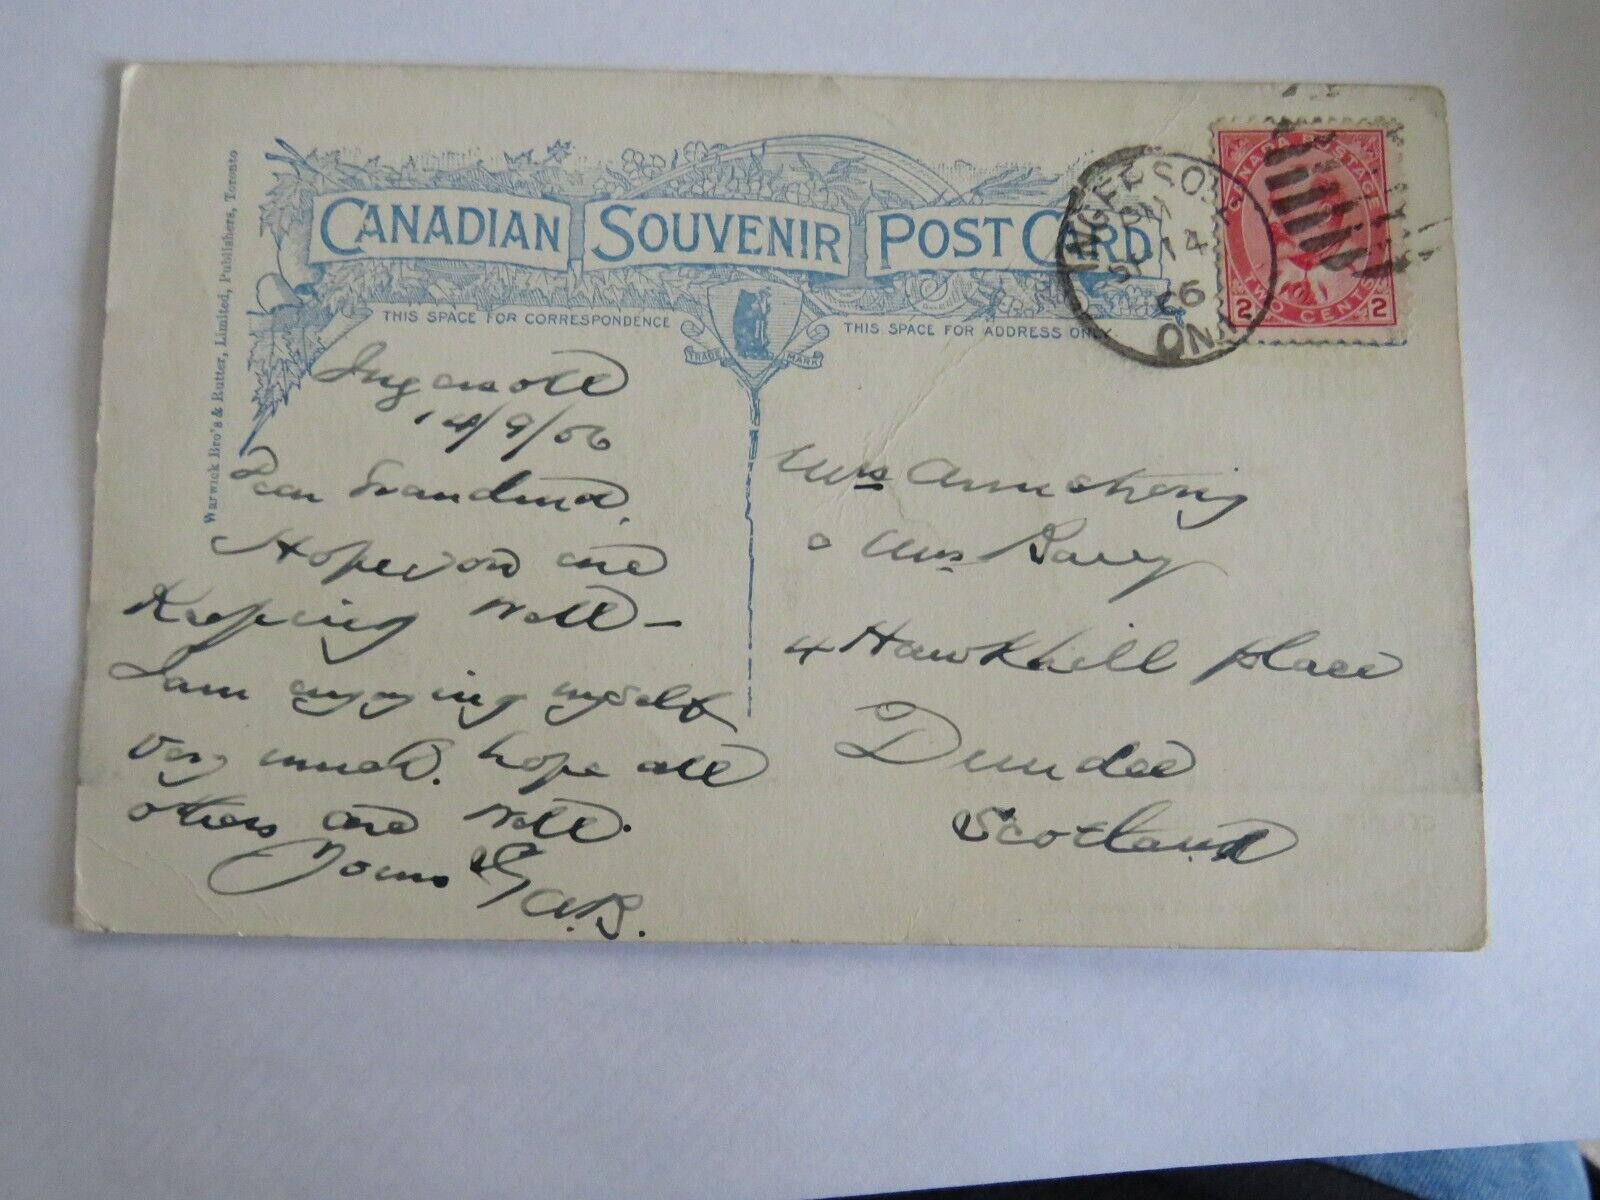 Warwick Bro's & Rutter, Limited, Publishers, Toronto
CANADIAN SOUVENIR POST CARD
THIS SPACE FOR CORRESPONDENCE
THIS SPACE FOR ADDRESS ONLY
TRADE MARK
INGERSOLL
PM
SP 14
06
ONT
CANADA POSTAGE
2 TWO CENTS 2
Ingersoll
14/9/06
Dear Grandma,
Hope you are
Keeping well –
I am enjoying myself
very much. hope all
others are well.
Yours
A.B.
Mrs Armstrong
c Mrs
4 Hawkhill place
Dundee
Scotland